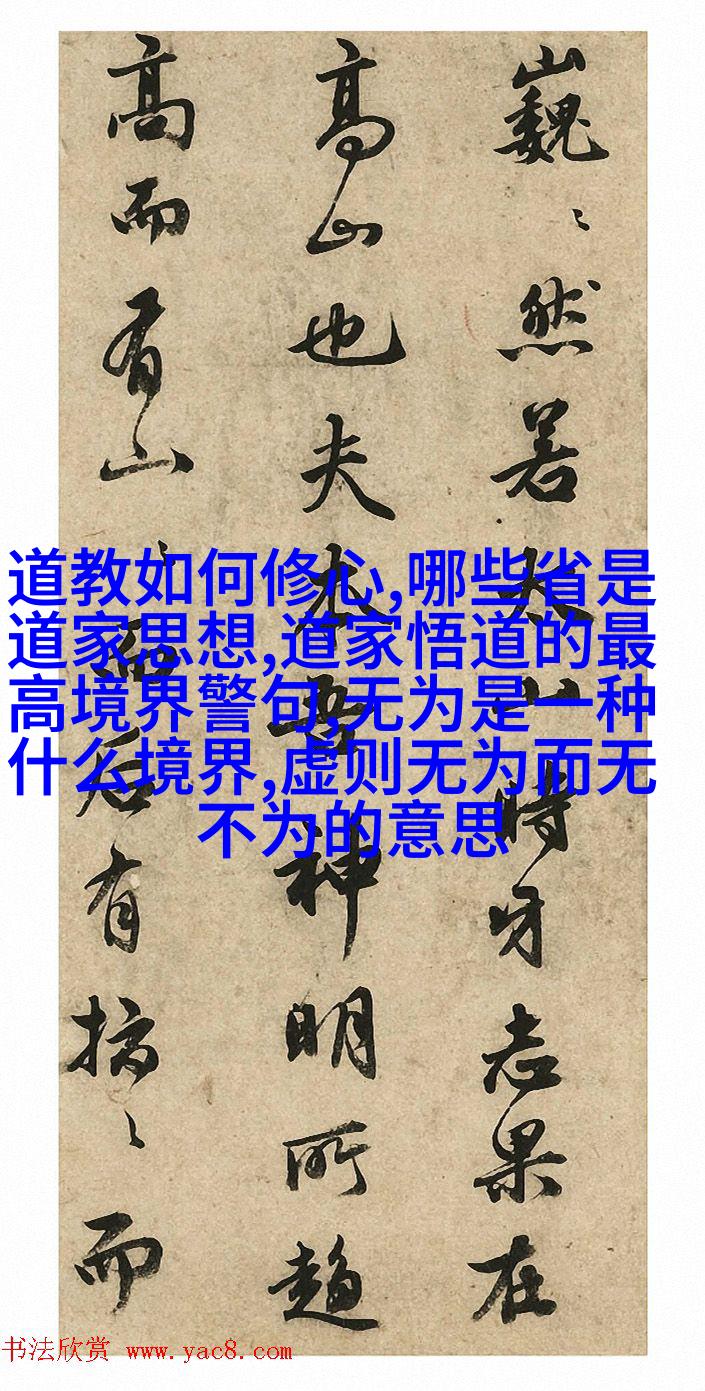 巍〻然若太山時牙志果在
高山也夫木吾神明所趨
高而有山〻而后有搞〻而
道教如何修心,哪些省是
道家思想,道家悟道的最
高境界警句,无为是一种
什么境界,虚则无为而无
不为的意思
书法欣赏 www.yac8.com